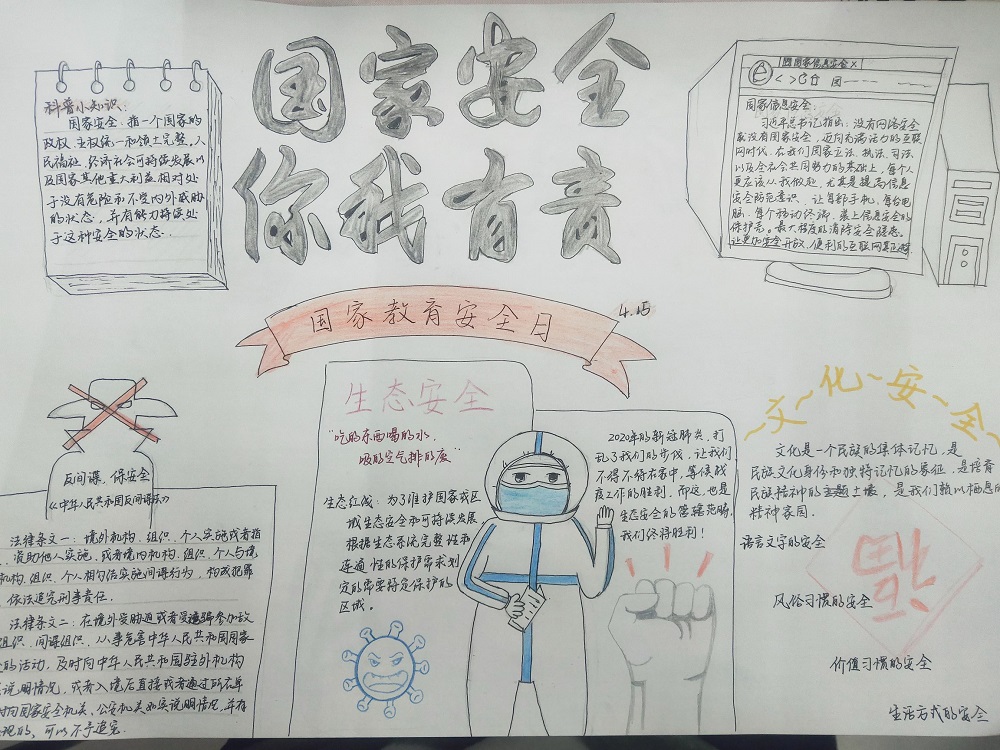 国家安全
你我有责
科普小知识：
国家安全：指一个国家的
政权、主权统一和领土完整、人
民福祉、经济社会可持续发展以
及国家其他重大利益相对处
于没有危险和不受内外威胁
的状态，并有能力持续处
于这种安全的状态.
国家信息安全 X
国家信息安全：
习近平总书记指出：没有网络安全
就没有国家安全，迈向充满活力的互联
网时代，在我们国家立法、执法、司法
以及全社会共同努力的基础上，每个人
更应该从我做起，尤其是提高信息
安全防范意识，让每部手机、每台电
脑、每个移动终端，装上信息安全的
保护壳。最大程度的消除安全隐患。
让更加安全开放、便利的互联网
国家教育安全日
4.15
反间谍，保安全
《中华人民共和国反间谍法》
法律条文一：境外机构、组织、个人实施或者指
、资助他人实施，或者境内机构、组织、个人与境
机构、组织、个人相勾结实施间谍行为，构成犯罪
，依法追究刑事责任.
法律条文二：在境外受胁迫或者受诱骗参加敌
组织、间谍组织，从事危害中华人民共和国国家
的活动，及时向中华人民共和国驻外机构
说明情况，或者入境后直接或者通过所在单
时向国家安全机关、公安机关如实说明情况，并有
现的，可以不予追究.
生态安全
“吃的东西喝的水，
吸的空气排的废”
生态红线：为了维护国家或区
域生态安全和可持续发展
根据生态系统完整性和
连通性的保护需求划
定的需要特定保护的
区域。
2020年的新冠肺炎，打
乱了我们的步伐，让我们
不得不待在家中，等候战
疫工作的胜利。而这，也是
生态安全的
我们终将胜利！
文化安全
文化是一个民族的集体记忆，是
民族文化身份和独特记忆的象征，是培育
民族精神的主题土壤，是我们赖以栖息的
精神家园.
语言文字的安全
风俗习惯的安全
价值习惯的安全
生活方式的安全